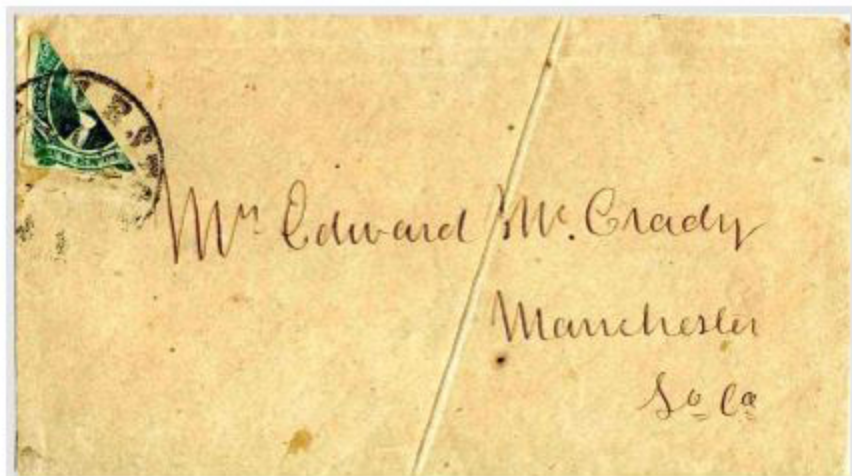 Mr Edward Mc. Crady
Manchester
So Ca